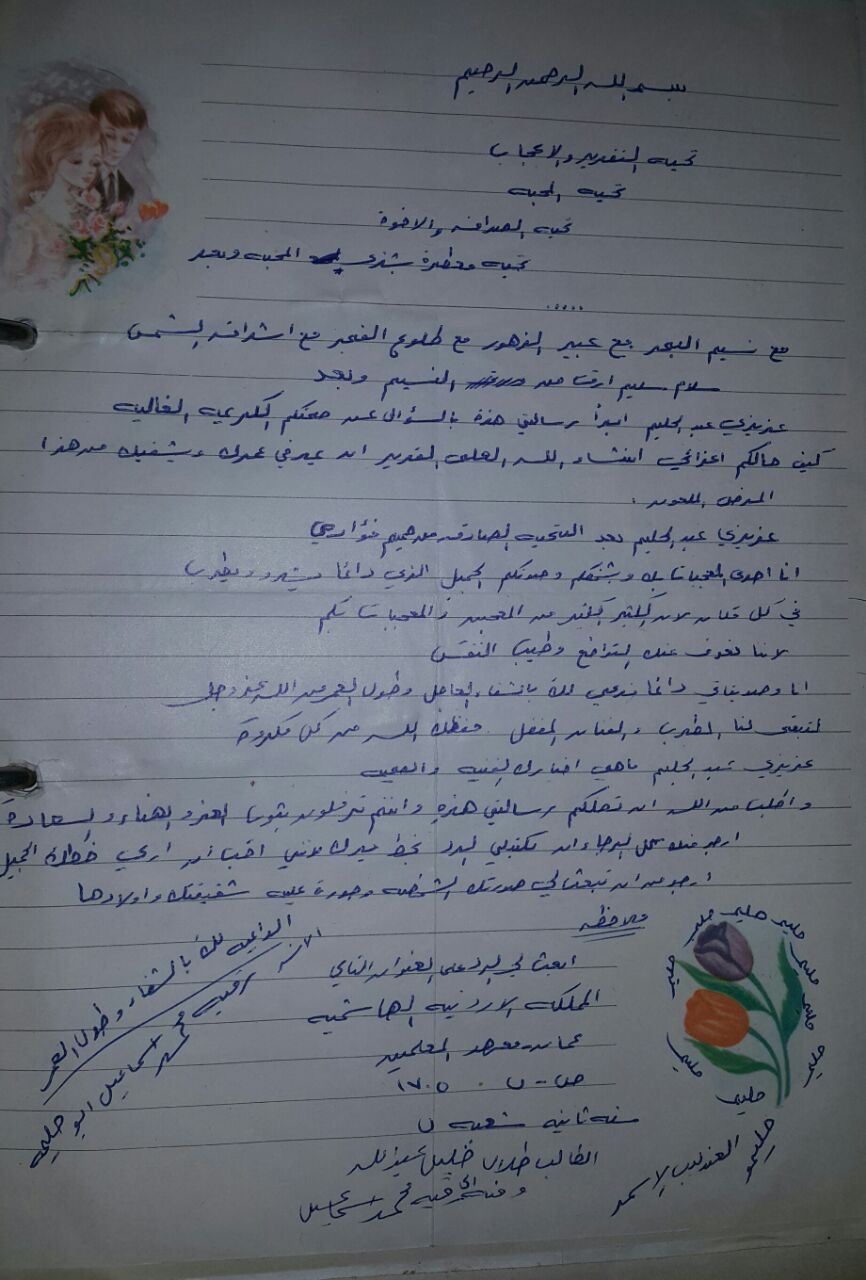 بسم الله الرحمن الرحيم
تحيه التقدير والاعجاب
تحيه المحبه
تحيه الصداقه والاخوة
تحيه معطرة بشذى المحبه وبعد
.....
مع نسيم البحر مع عبير الزهور مع طلوع الفجر مع اشراقه الشمس
سلام سليم ارق من النسيم وبعد
عزيزي عبد الحليم ابدأ رسالتي هذة بالسؤال عن صحتكم الغاليه
كيف حالكم اعزائي انشاء الله العلي القدير ان في عمرك ويشفيك من هذا
المرض الملعون .
عزيزي عبد الحليم بعد التحيه الصادقه من صميم فؤادي
انا احدى المعجبات بك وبشخصكم وصوتكم الجميل الذي دائما ويطرب
في كل مكان لان الكثير الكثير من المعجبين والمعجبات بكم
لاننا نعرف عنك التواضع وطيب النفس
انا وصديقاتي دائما ندعي لك بالشفاء العاجل وطول العمر من الله عز وجل
لتبقى لنا المطرب والفنان المفضل حفظك الله من كل مكروة
عزيزي عبد الحليم ماهي اخبارك الفنيه والصحيه
واطلب من الله ان تصلكم رسالتي هذة وانتم ترفلون بثوب العز والهناء والسعادة
ارجو منك كل الرجاء ان تكتبلي الرد بخط يدك لانني احب ان ارى خطك الجميل
ارجو من ان تبعثلي صورتك الشخصيه وصورة عليه شقيقتك واولادها
ملاحظه
ابعث لي الرد على العنوان التالي
المملكه الاردنيه الهاشميه
عمان - معهد المعلمين
ص - ب . ١٧٠٥
سنه ثانيه شعبه ب
الطالب طلال خليل عبدالله
ومنه الى رقيه محمد اسماعيل
الداعيه لك بالشفاء وطول العمر
الانسه رقيه محمد اسماعيل ابو حليمه
حليم حليم حليم حليم حليم حليم حليم حليم حليم حليم
حليمو
العندليب الاسمر